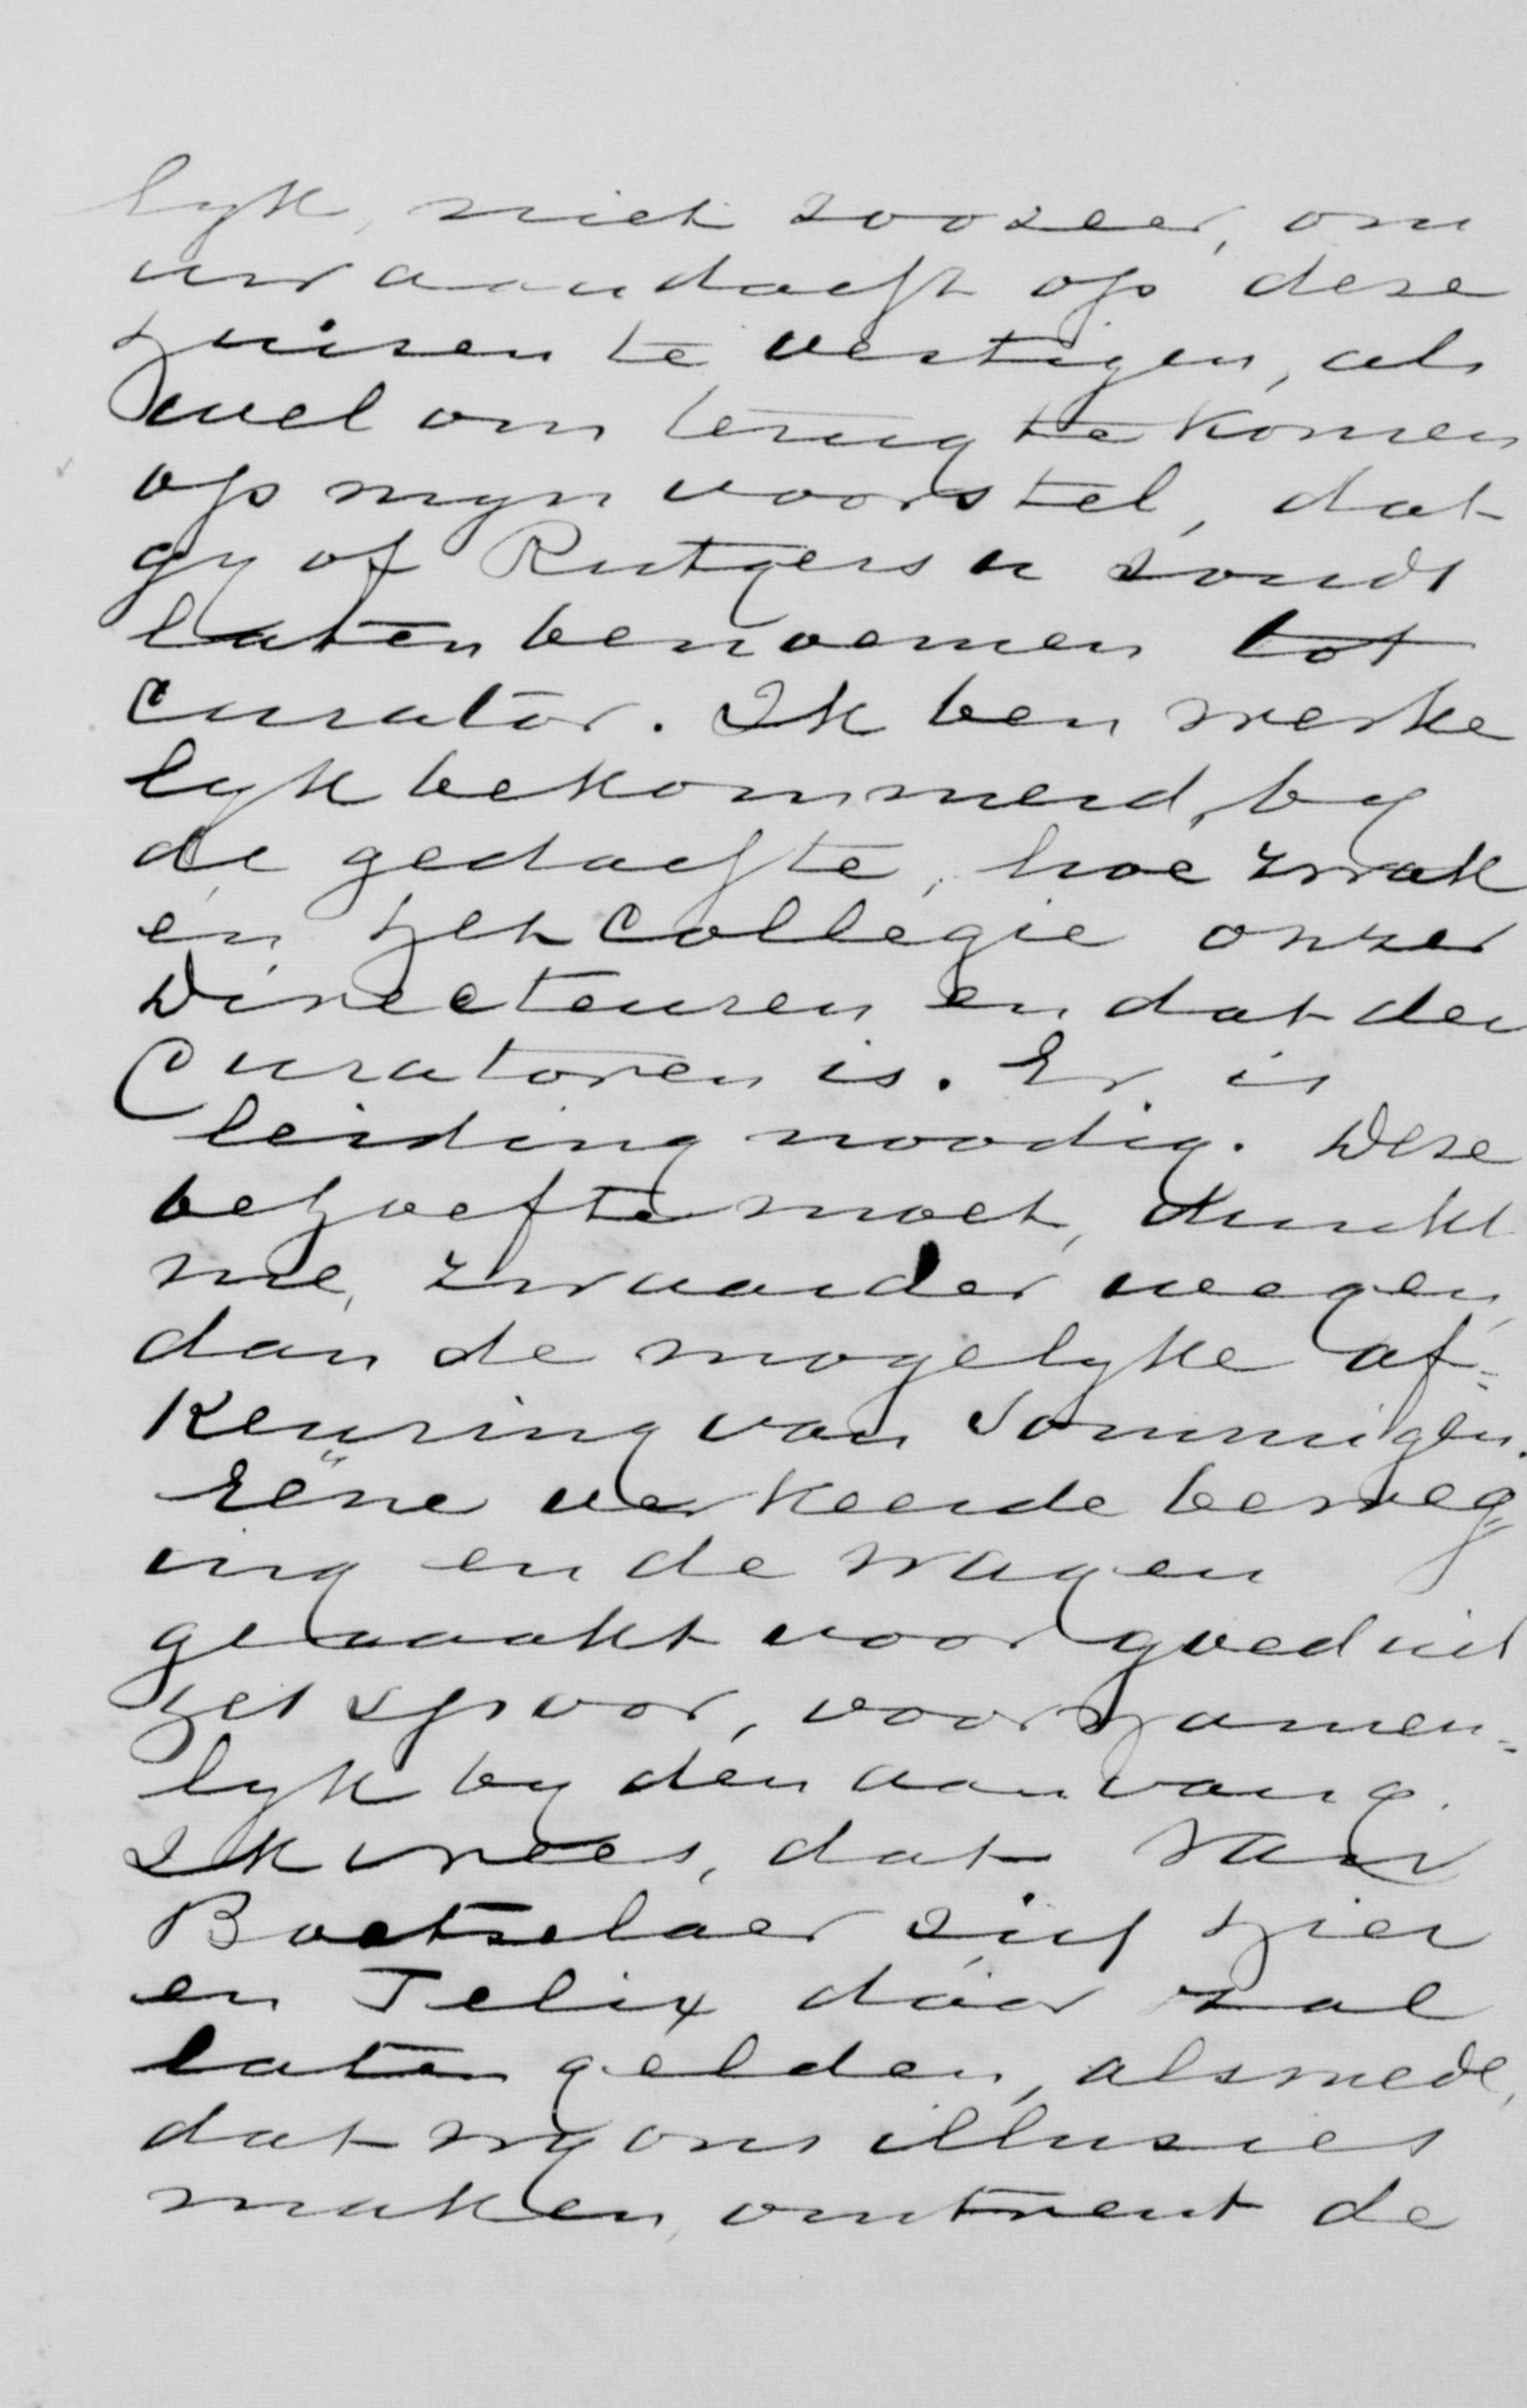 lyk, niet zoozeer, om
uw aandacht op deze
huizen te vestigen, als
wel om terug te komen
op myn voorstel, dat
gy of Rutgers u zoudt
laten benoemen tot
Curator. Ik ben werke
lyk bekommerd, by
de gedachte, hoe zwak
én het Collegie onzer
Directeuren én dat der
Curatoren is. Er is
leiding noodig. Deze
behoefte moet, dunkt
me, zwaarder wegen,
dan de mogelyke af=
keuring van sommigen.
Eéne verkeerde beweg=
ing en de wagen
geraakt voor goed uit
het spoor, voornamen=
lyk by den aanvang.
Ik vrees, dat van
Boetzelaer zich hier
en Felix dáár zal
laten gelden, alsmede,
dat wy ons illusies
maken, omtrent de